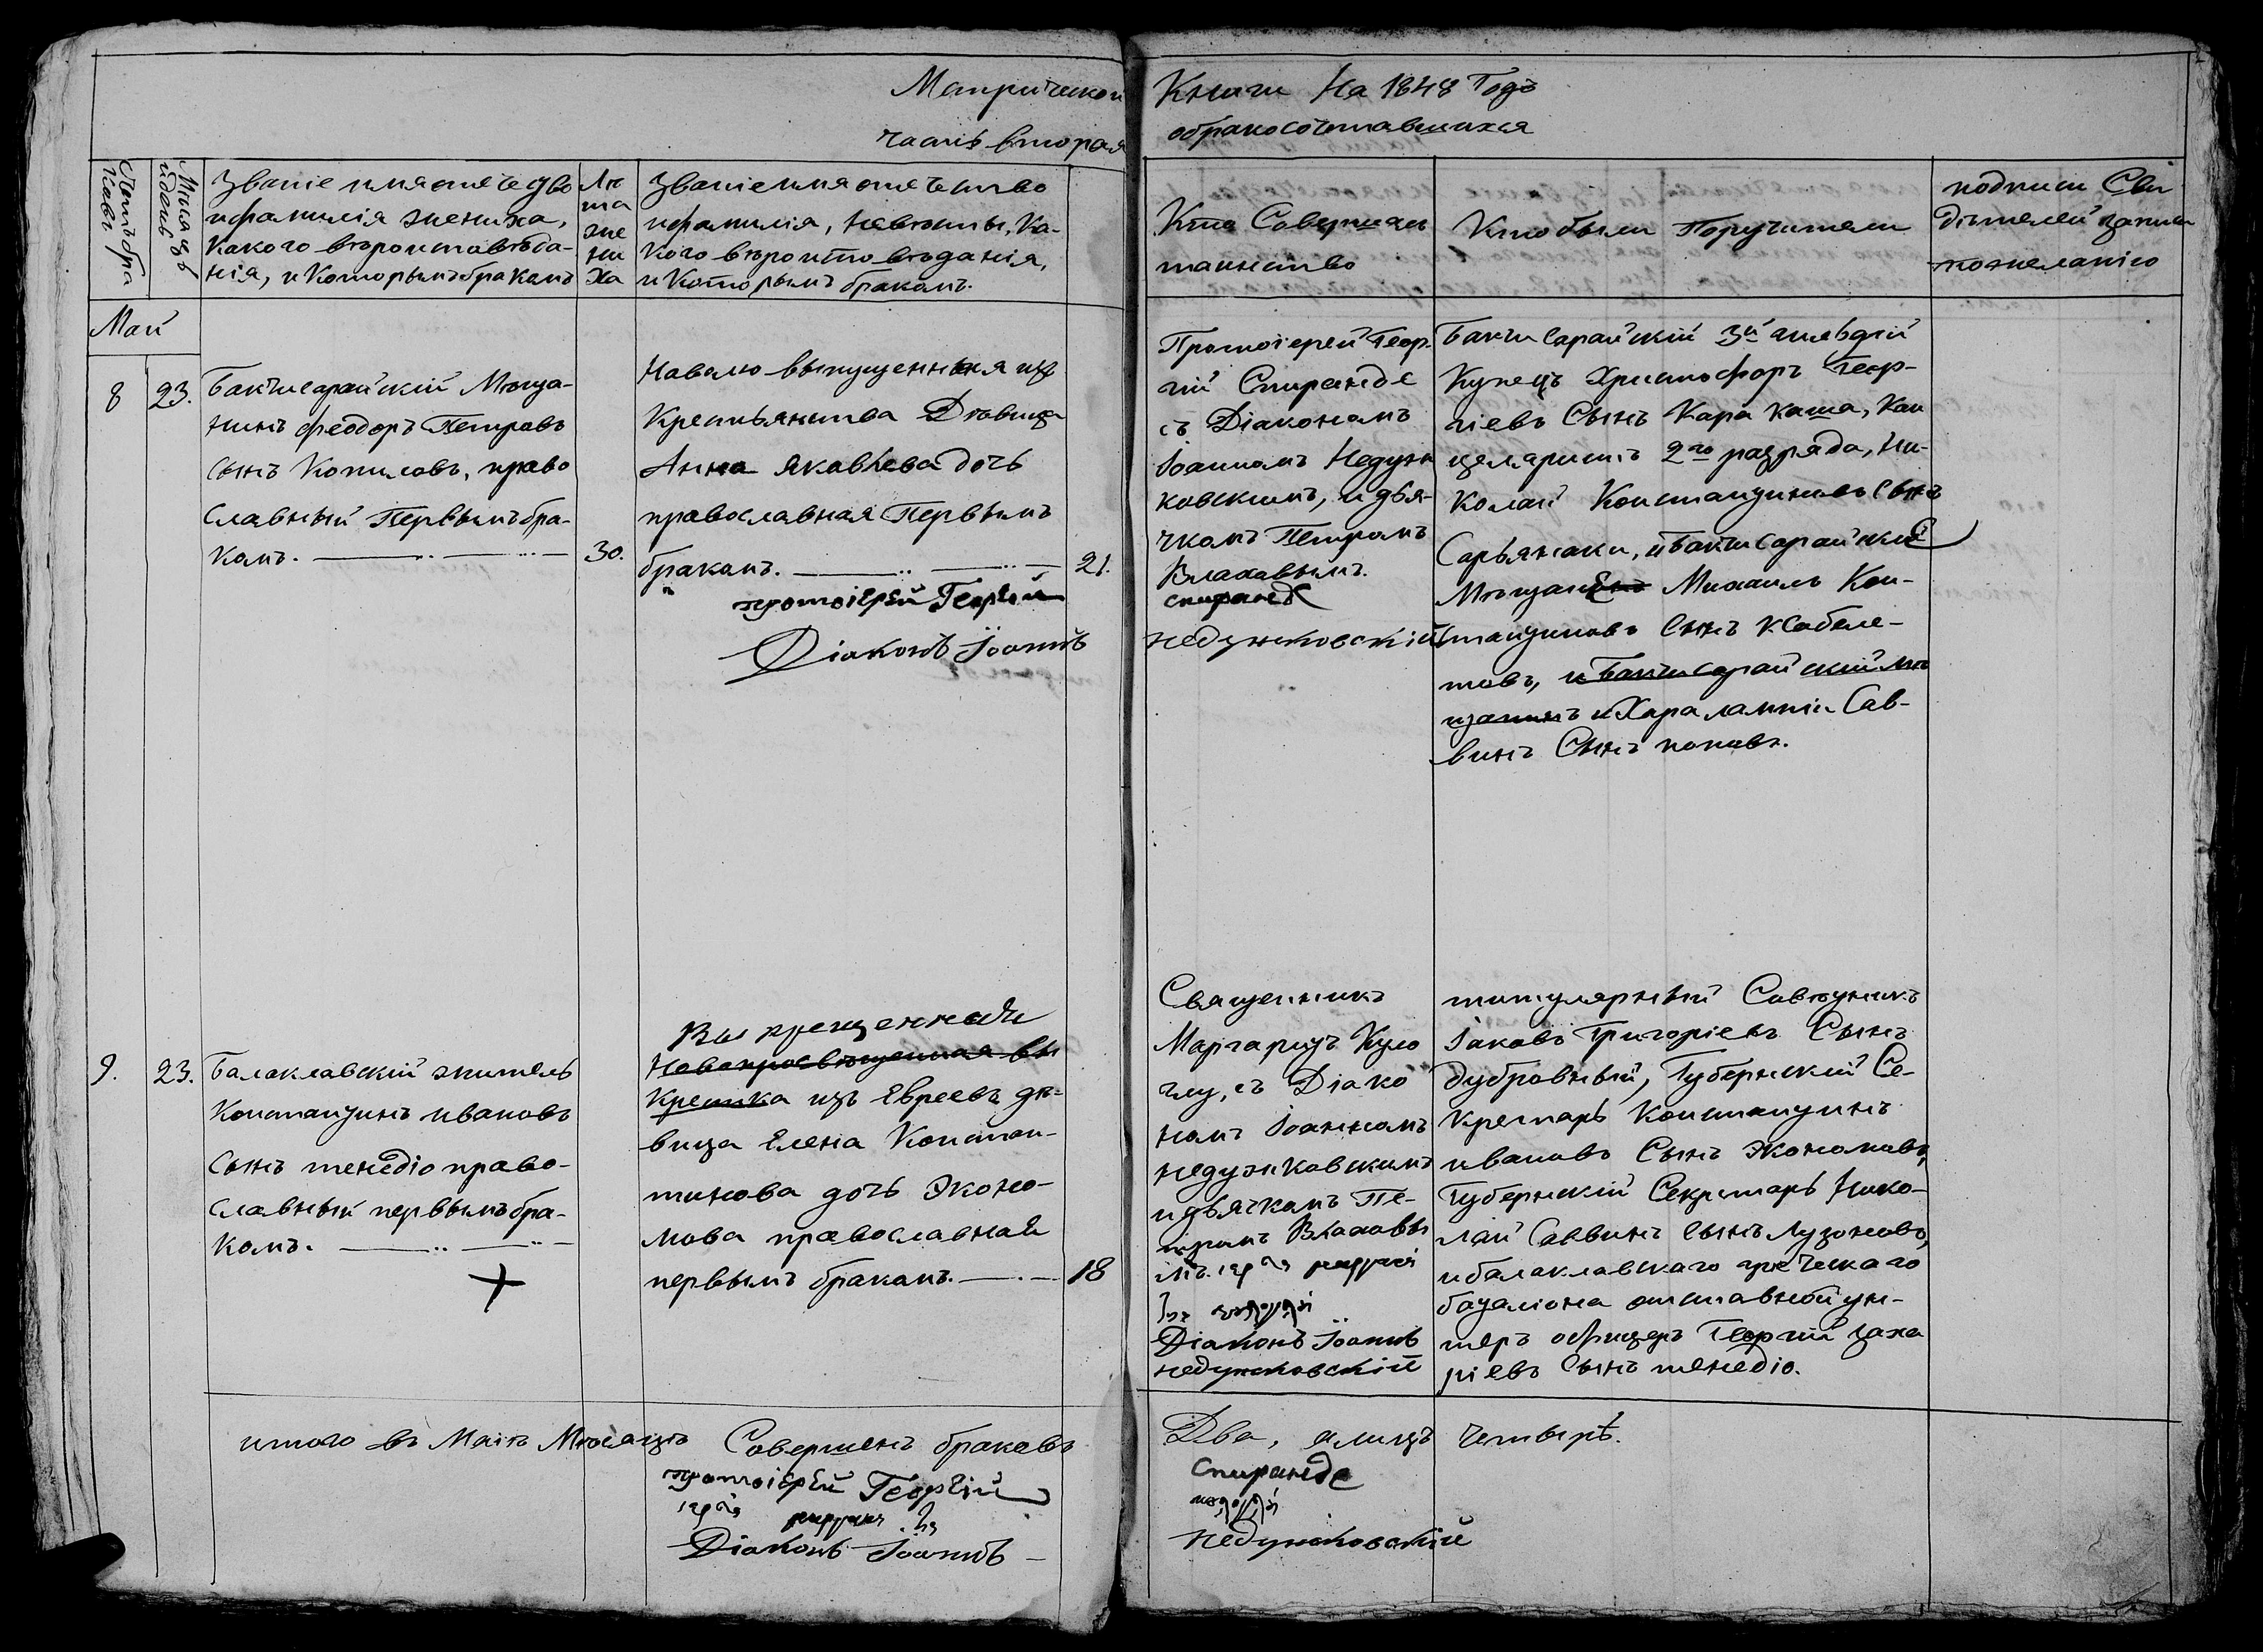 Метрической Книги На 1848 Годъ
часть вторая обракосочетавшихся
Счетъ браковъ
Мѣсяцъ и день
Званіе имя отечество
и фамилія жениха,
какого вѣроисповѣда-
нія, и которымъ бракомъ
Лѣ
та
же
ни
ха
Званіе имя отечество
и фамилія, невѣсты, ка-
кого вѣроисповѣданія,
и которымъ бракомъ.
Кто Совершал
таинство
Кто были Поручители
подписи Сви
дѣтелей записи
по желанію
Май
8
23.
Бахчисарайскій Мѣща-
нинъ Феодоръ Петровъ
сынъ Копиловъ, право
славный Первымъ бра-
комъ.
30.
выпущенная изъ
Крестьянства Дѣвица
Анна Яковлева дочь
православная Первымъ
бракомъ.
21.
протоіерей Георгій
Діаконъ Іоаннъ
Протоіерей Геор-
гій Спиранде
съ Діакономъ
Іоанномъ Недуж
ковскимъ, и дья-
чкомъ Петромъ
Влаховымъ.
спиранде
недужковскій
Бахчисарайскій 3й гильдій
Купецъ Христофоръ Геор-
гіевъ Сынъ Кара Каша, Кан
целяристъ 2го разряда, Ни-
колай Константиновъ сынъ
Сарьянаки, и Бахчисарайскій
Михаилъ Кон-
стантиновъ сынъ
товъ, и Бахчисарайскій мѣ
щанинъ и Харалампій Сав-
винъ Сынъ поповъ.
9.
23.
Балаклавскій житель
Константинъ ивановъ
сынъ тенедіо право-
славный первымъ бра-
комъ.
Новопросвѣщенная вы
Крестка изъ Евреевъ дѣ-
вица Елена Констан-
тинова дочь Эконо-
мова православная
первымъ бракомъ.
18
Священникъ
Маргаритъ
съ Діако
номъ Іоанномъ
недужковскимъ
и дьячкомъ Пе-
тромъ Влаховы
мъ.
Діаконъ Іоаннъ
недужковскій
титулярный Совѣтникъ
Іаковъ Григоріевъ Сынъ
дубровный, Губернскій Се-
кретарь Константинъ
ивановъ Сынъ Экономовъ,
Губернскій Секретарь Нико-
лай Саввинъ сынъ Лузоновъ,
и балаклавскаго греческаго
баталіона отставной ун-
теръ офицеръ Георгій заха
ріевъ Сынъ тенедіо.
итого въ Маіѣ Мѣсяцѣ Совершенъ браковъ Два, а лицъ Четырѣ.
протоіерей Георгій Спиранде
Діаконъ Іоаннъ недужковскій